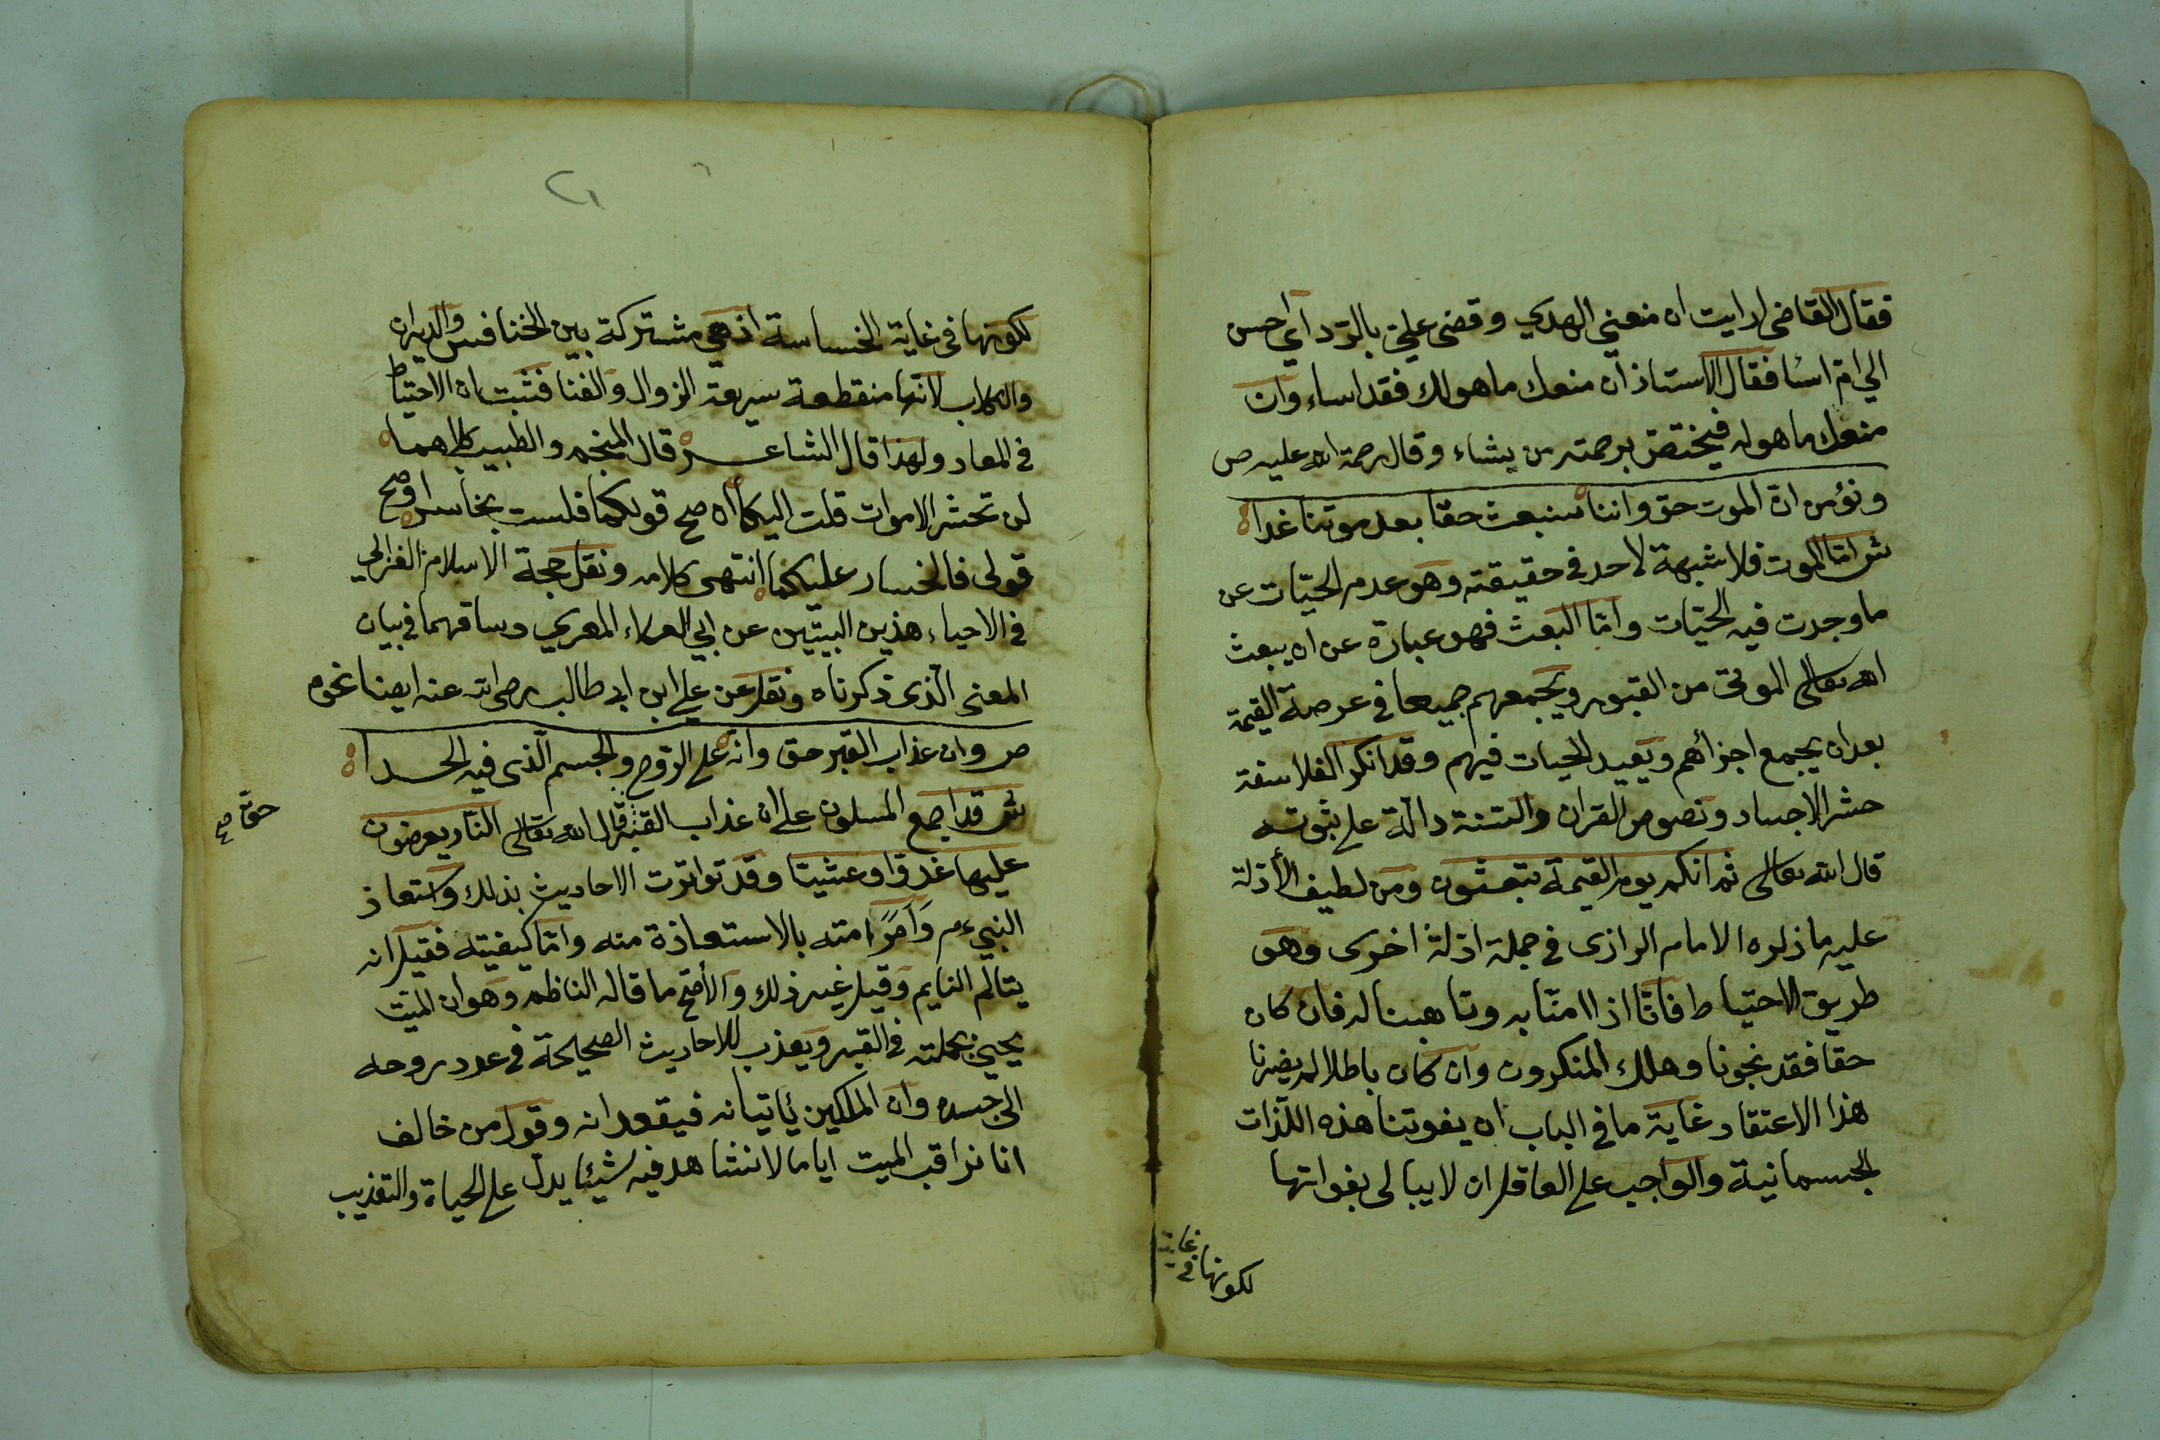 فقال القاضي ارايت ان منعني الهدي وقضى علي بالردا أي احسن
الي ام اسا فقال الاستاذ ان منعك ما هو لك فقد اساء وان
منعك ما هو له فيختص برحمته من يشاء وقال رحمة الله عليه ص
ونؤمن ان الموت حق واننا سنبعث حقا بعد موتنا غدا
ش اما الموت فلا شبهة لاحد في حقيقته وهو عدم الحيات عن
ما وجدت فيه الحيات واما البعث فهو عبارة عن ان يبعث
الله تعالى الموتى من القبور ويجمعهم جميعا في عرصة القيمة
بعد ان يجمع اجزأهم ويعيد الحيات فيهم وقد انكر الفلاسفة
حشر الاجساد ونصوص القران والسنة دالة على ثبوته
قال الله تعالى ثم انكم يوم القيمة تبعثون ومن لطيف الأدلة
عليه ما ذكره الامام الرازى في جملة ادلة اخرى وهو
طريق الاحتياط فانا اذا امنا به وتاهبنا له فان كان
حقا فقد نجونا وهلك المنكرون وان كان باطلا لم يضرنا
هذا الاعتقاد غاية ما في الباب ان يفوتنا هذه اللذات
الجسمانية والواجب على العاقل ان لا يبالى بفواتها
لكونها في غاية
٢١
لكونها فى غاية الخساسة اذ هي مشتركة بين الخنافس والديدان
والكلاب لانها منقطعة سريعة الزوال والفنا فثبت ان الاحتياط
في المعاد ولهذا قال الشاعر قال المنجم والطبيب كلاهما
لن تحشر الاموات قلت اليكما ان صح قولكما فلست بخاسر او صح
قولى فالخسار عليكما انتهى كلامه ونقل حجة الاسلام الغزالي
في الاحياء هذين البيتين عن ابي العلاء المعري وساقهما في بيان
المعنى الذى ذكرناه ونقل عن علي ابن ابى طالب رضي الله عنه ايضا نحوه
ص وان عذاب القبر حق وانه على الروح والجسم الذى فيه الحدا
ش قد اجمع المسلمون على ان عذاب القبر قال الله تعالى النار يعرضون
حق صح
عليها غدوا وعشيا وقد تواترت الاحاديث بذلك واستعاذ
النبي ءم وامر امته بالاستعاذة منه واما كيفيته فقيل انه
يتالم النايم وقيل غير ذلك والأصح ما قاله الناظم وهو ان الميت
يحيى بجملته في القبر ويعذب للاحاديث الصحيحة في عدد روحه
الى جسده وان الملكين يأتيانه فيقعدانه وقول من خالف
انا نراقب الميت اياما لا نشاهد فيه شيئا يدل على الحياة والتعذيب